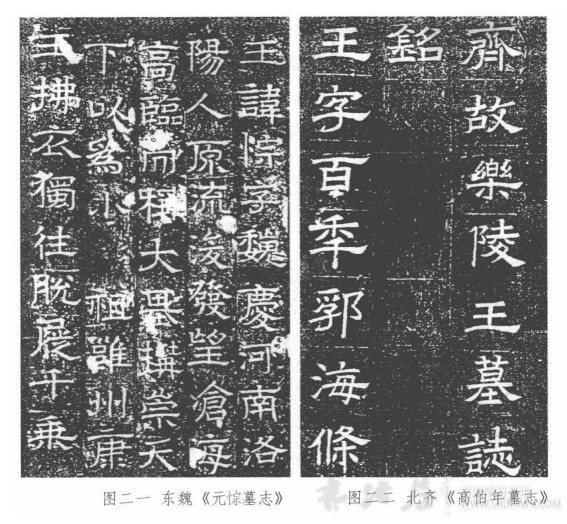 王諱悰字魏慶河南洛
陽人原流浚發望滄海
高臨而稱大基構崇天
下以爲小祖雒州康
王拂衣獨往脫屣千乘
图二一 东魏《元悰墓志》
齊故樂陵王墓誌
銘
王字百秊郣海條
图二二 北齐《高伯年墓志》